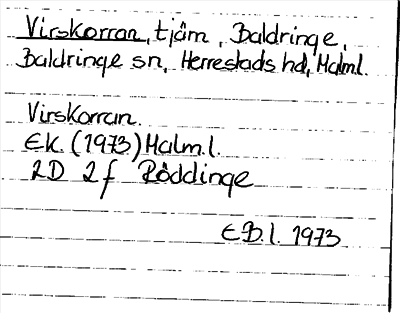 Virskorran, tjäm, Baldringe,
Baldringe sn, Herrestads hd, Malml.
Virskorran.
Ek. (1973) Malm.l.
2D 2f Röddinge
EB.l. 1973